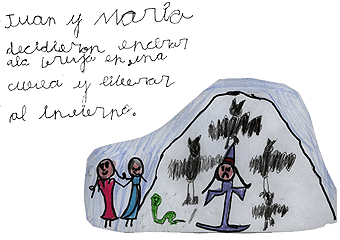 Juan y María
decidieron encerrar
a la bruja en una
cueva y liberar
al invierno.